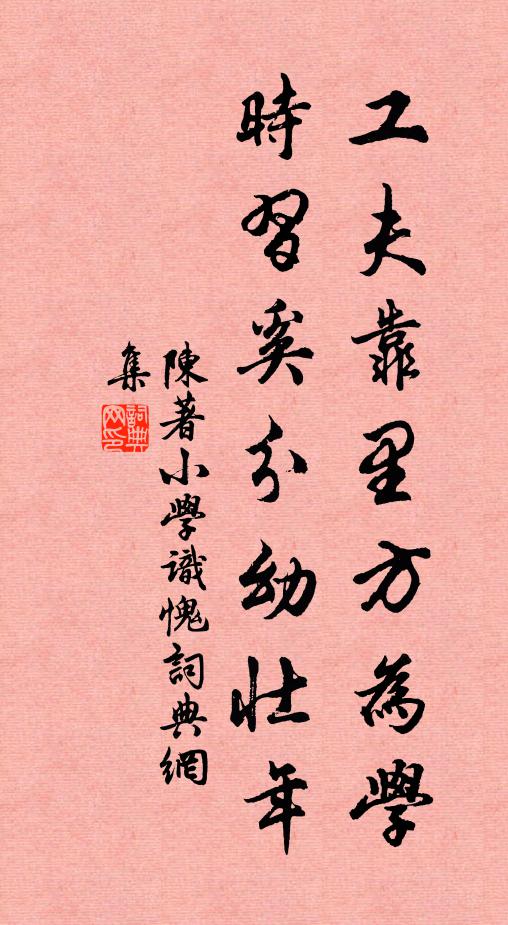 工夫靠里方為學
時習奚分幼壯年
陳著小學識愧詞典網
集
詞典
网印